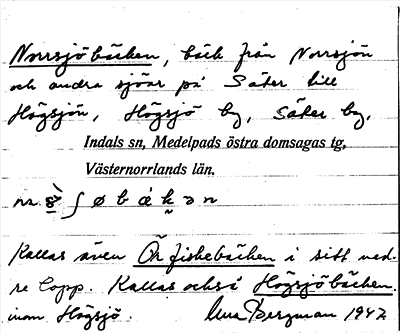 Norrsjöbäcken, bäck från Norrsjön
och andra sjöar på Säter till
Högsjön, Högsjö by, Säter by,
Indals sn, Medelpads östra domsagas tg,
Västernorrlands län.
Kallas även Örfiskebäcken i sitt ned-
re lopp. Kallas också Högsjöbäcken.
inom Högsjö. Bergman 1947